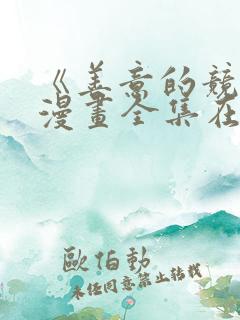 《善意的競
漫畫全集在
歐伯勢
未经同意禁止转载